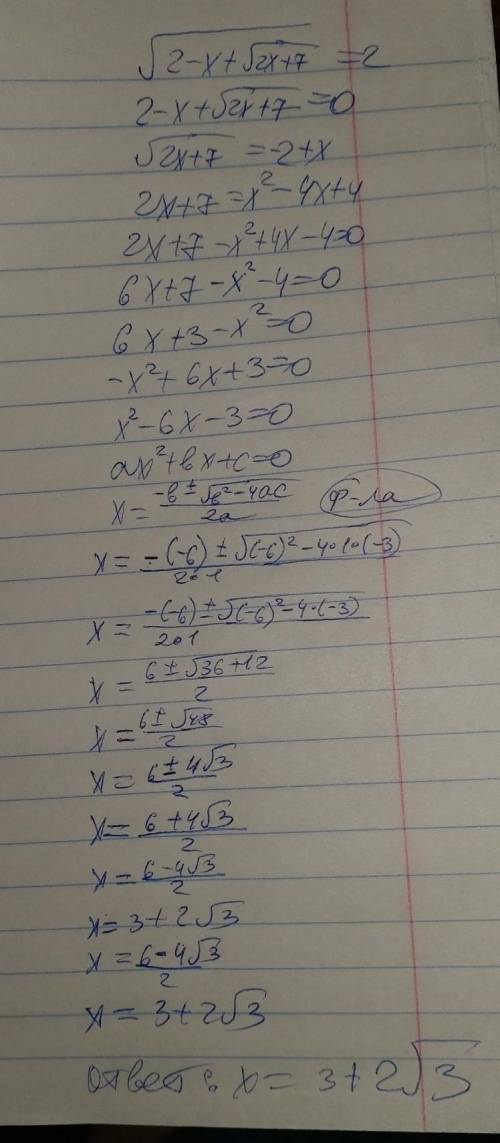 √(2-x+√(2x+7)) =2
2-x+√(2x+7) =0
√(2x+7) =-2+x
2x+7=x²-4x+4
2x+7-x²+4x-4=0
6x+7-x²-4=0
6x+3-x²=0
-x²+6x+3=0
x²-6x-3=0
ax²+bx+c=0
x= (-b±√(b²-4ac))/2a ф-ла
x= (-(-6)±√((-6)²-4•1•(-3)))/2•1
x= (-(-6)±√((-6)²-4•(-3)))/2•1
x= (6±√(36+12))/2
x= (6±√48)/2
x= (6±4√3)/2
x= (6+4√3)/2
x= (6-4√3)/2
x= 3+2√3
x= (6-4√3)/2
x= 3+2√3
ответ: x= 3+2√3